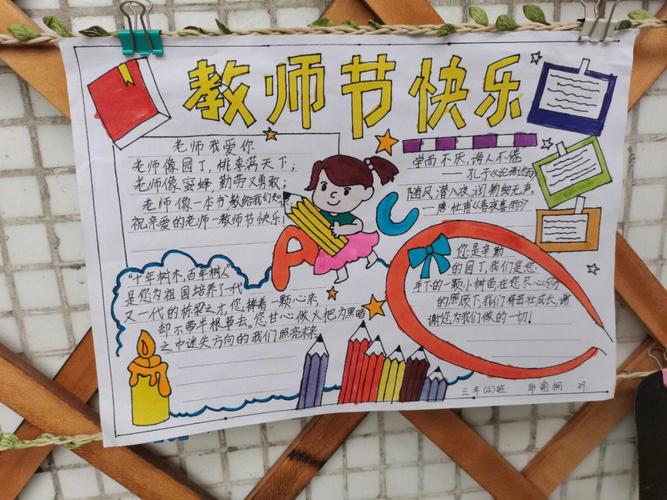 教师节快乐
老师我爱你
老师像园丁,桃李满天下;
老师像蜜蜂,勤劳又勇敢;
老师像一本书教给我们知识
祝亲爱的老师—教师节快乐!
学而不厌,诲人不倦
——孔子《论语述而》
随风潜入夜,润物细无声。
——唐 杜甫《春夜喜雨》
A C
"十年树木,百年树人"
是您为祖国培养了一代
又一代的桥梁之才,您捧着一颗心来
却不带半根草去。您甘心做火把为黑暗
之中迷失方向的我们照亮未来
您是辛勤
的园丁,我们是您
手下的一颗小树苗,在您尽心尽力
的照顾下,我们茁壮成长,谢
谢您为我们做的一切!
三年(4)班